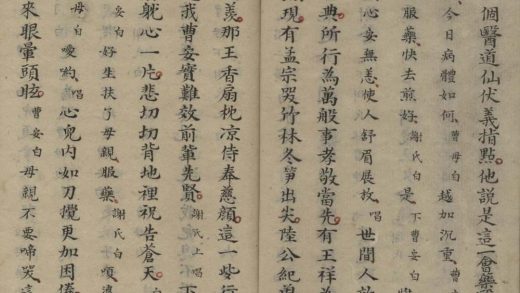 個醫道仙伏義指點他說是這一會藥
今日病體如何曹母白越加沉重曹
服藥快去煎好謝氏白是下曹安白
心安無恙使人舒眉展放唱世間人
典所行為萬般事孝敬當先有王祥
現有孟宗哭竹林冬笋出尖陸公紀
羨那王香扇枕凉侍奉慈顏這一些行
我曹安實難效前輩先賢謝氏上唱
躭心一片悲切切背地裡祝告蒼天
安白好生扶了母親服藥謝氏白
母白噯喲唱心兒內如刀攪更加困倦
來眼暈頭眩曹安白母親不要啼哭